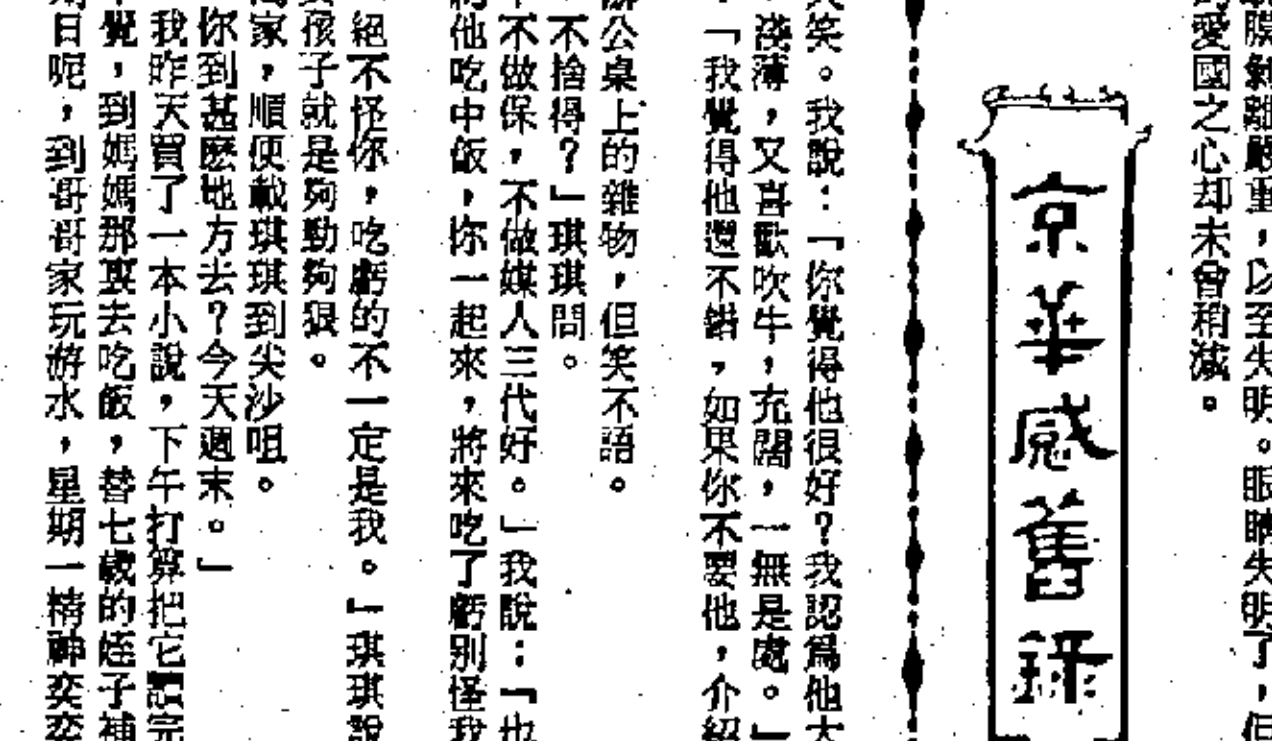 膜剝離嚴重，以至失明。眼睛失明了，但
愛國之心却未曾稍減。
京華感舊錄
笑。我說：「你覺得他很好？我認爲他大
淺薄，又喜歡吹牛，充闊，一無是處。」
「我覺得他還不錯，如果你不要他，介紹
公桌上的雜物，但笑不語。
不捨得？」琪琪問。
不做保，不做媒人三代好。」我說：「也
他吃中飯，你一起來，將來吃了虧別怪我
絕不怪你，吃虧的不一定是我。」琪琪說
孩子就是夠勤夠狠。
家，順便載琪琪到尖沙咀。
你到甚麽地方去？今天週末。」
我昨天買了一本小說，下午打算把它讀完
覺，到媽媽那裏去吃飯，替七歲的姪子補
日呢，到哥哥家玩游水，星期一精神奕奕